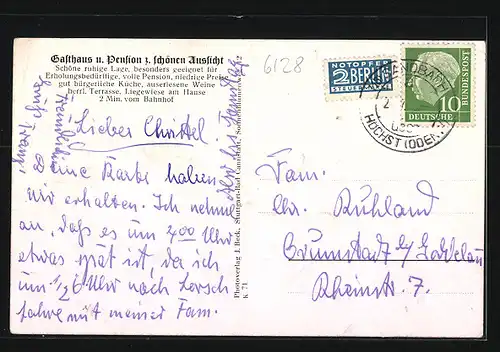 Gasthaus u. Pension z. schönen Aussicht
Schöne ruhige Lage, besonders geeignet für
Erholungsbedürftige, volle Pension, niedrige Preise
gut bürgerliche Küche, auserlesene Weine
herrl. Terrasse, Liegewiese am Hause
2 Min. vom Bahnhof
6128
NOTOPFER
2 BERLIN
STEUERMARKE
DEUTSCHE
BUNDESPOST
10
HÖCHST (ODENW
Lieber Christel.
eine Karte haben
wir erhalten. Ich nehme
an, daß es um 4.00 Uhr
etwas spät ist, da ich
um 1/2 6 Uhr nach Lorsch
fahre mit meiner Fam.
Photoverlag J. Beck, Stuttgart-Bad Cannstatt,
K 71
Fam.
Ruhland
Rheinstr. 7.